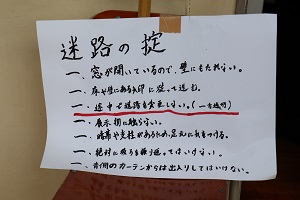 迷路の掟
一、窓が開いているので、壁にもたれない。
一、床や壁にある矢印に従って進む。
一、途中で道路を変更しない。(一方通行)
一、展示物に触らない。
一、暗幕や支柱があるため、足元に気をつける。
一、絶対に後ろを振り返ってはいけない。
一、青側のカーテンからは出入りしてはいけない。